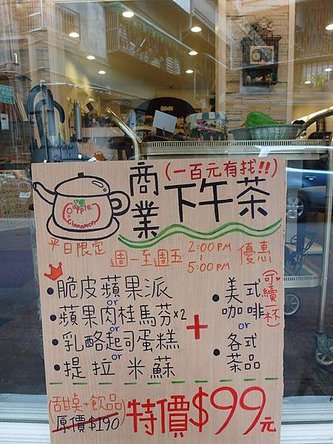 (一百元有找!!)
商業 下午茶
Apple Cinnamon
平日限定
週一至週五 2:00PM~5:00PM 優惠
•脆皮蘋果派
or
•蘋果肉桂馬芬x2
or
•乳酪起司蛋糕
or
•提拉米蘇
+
•美式咖啡 可續杯
or
•各式茶品
甜桌+飲品
原價$190
特價$99元